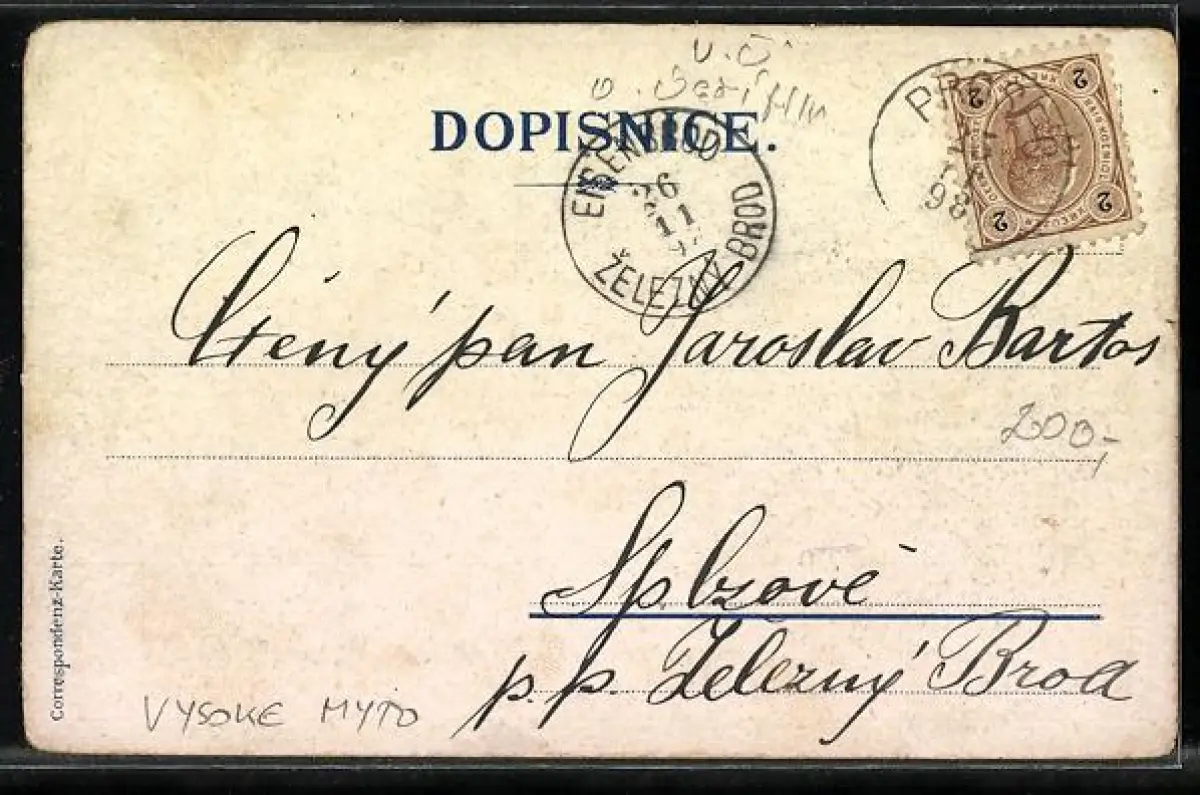 V.Č
DOPISNICE.
EISENBROD
26
11
ŽELEZNÝ-BROD
PRO
98
2 2
2 2
Ctěný pan Jaroslav Bartoš
200,-
Splzově
p.p. Železný Brod
Correspondenz-Karte.
VYSOKE MYTO